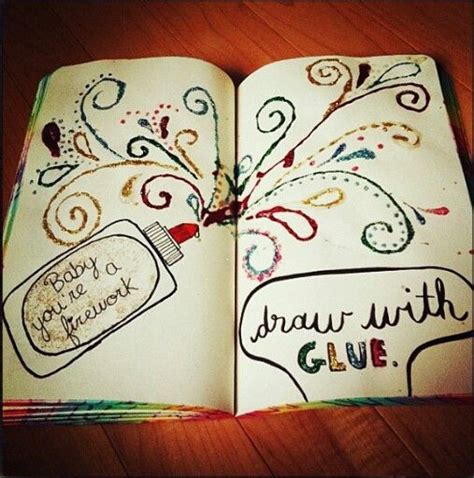 Baby
you're a
firework
draw with
GLUE.